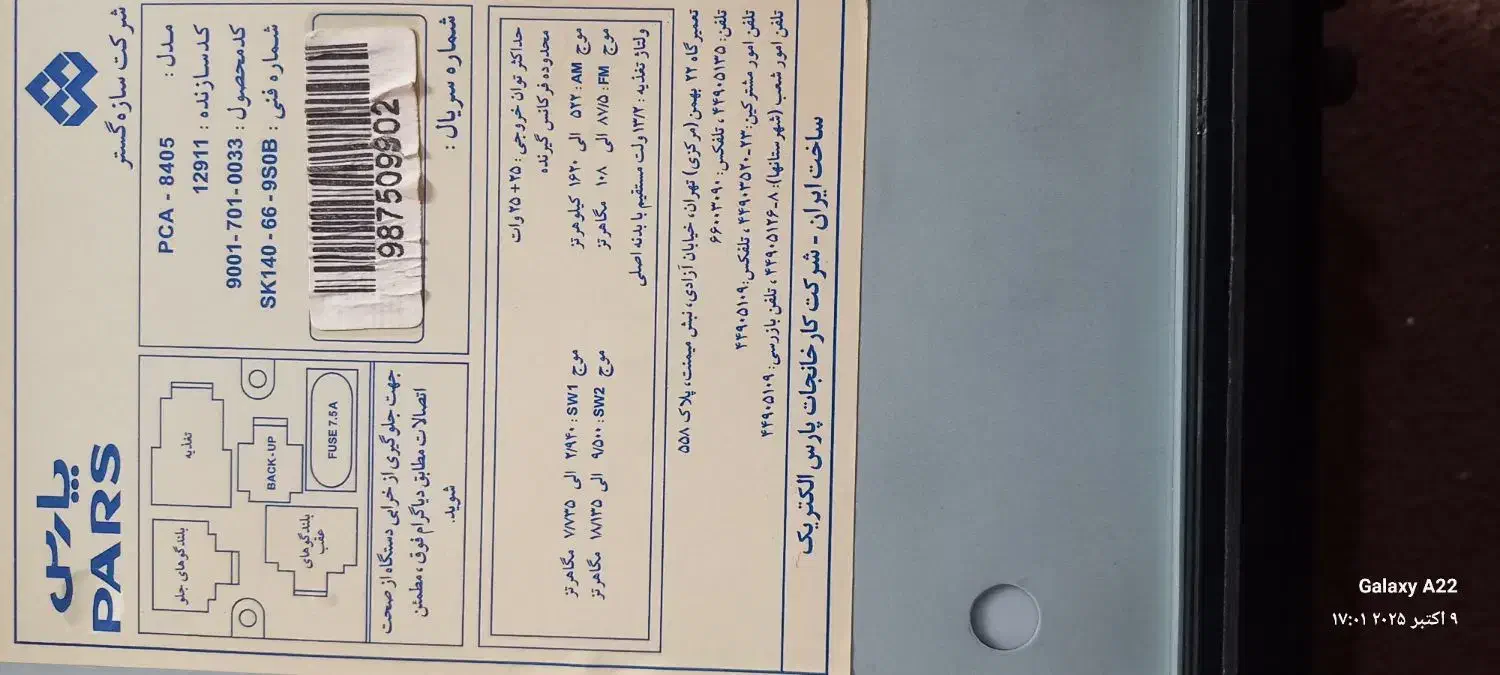 پارس
PARS
شرکت سازه گستر
مدل : PCA - 8405
کدسازنده : 12911
کدمحصول : 9001-701-0033
شماره فنی : SK140-66-9S0B
987509902
شماره سریال :
بلندگوهای جلو
تغذیه
بلندگوهای
عقب
BACK-UP
FUSE 7.5A
جهت جلوگیری از خرابی دستگاه از صحت
اتصالات مطابق دیاگرام فوق، مطمئن
شوید.
حداکثر توان خروجی : ۲۵+۲۵ وات
محدوده فرکانس گیرنده
موج AM : ۵۲۲ الی ۱۶۲۰ کیلوهرتز
موج SW1 : ۲/۹۴۰ الی ۷/۷۳۵ مگاهرتز
موج FM : ۸۷/۵ الی ۱۰۸ مگاهرتز
موج SW2 : ۹/۵۰۰ الی ۱۸/۱۳۵ مگاهرتز
ولتاژ تغذیه : ۱۳/۲ ولت مستقیم با بدنه اصلی
تعمیرگاه ۲۲ بهمن (مرکزی) تهران، خیابان آزادی، نبش میمنت، پلاک ۵۵۸
تلفن: ۴۴۹۰۵۱۳۵ ، تلفکس: ۶۶۰۰۳۰۹۰
تلفن امور مشترکین: ۲۳-۴۴۹۰۳۵۲۰ ، تلفکس: ۴۴۹۰۵۱۰۹
تلفن امور شعب (شهرستانها): ۸-۴۴۹۰۵۱۲۶ ، تلفن بازرسی: ۴۴۹۰۵۱۰۹
ساخت ایران - شرکت کارخانجات پارس الکتریک
Galaxy A22
۹ اکتبر ۲۰۲۵ ۱۷:۰۱